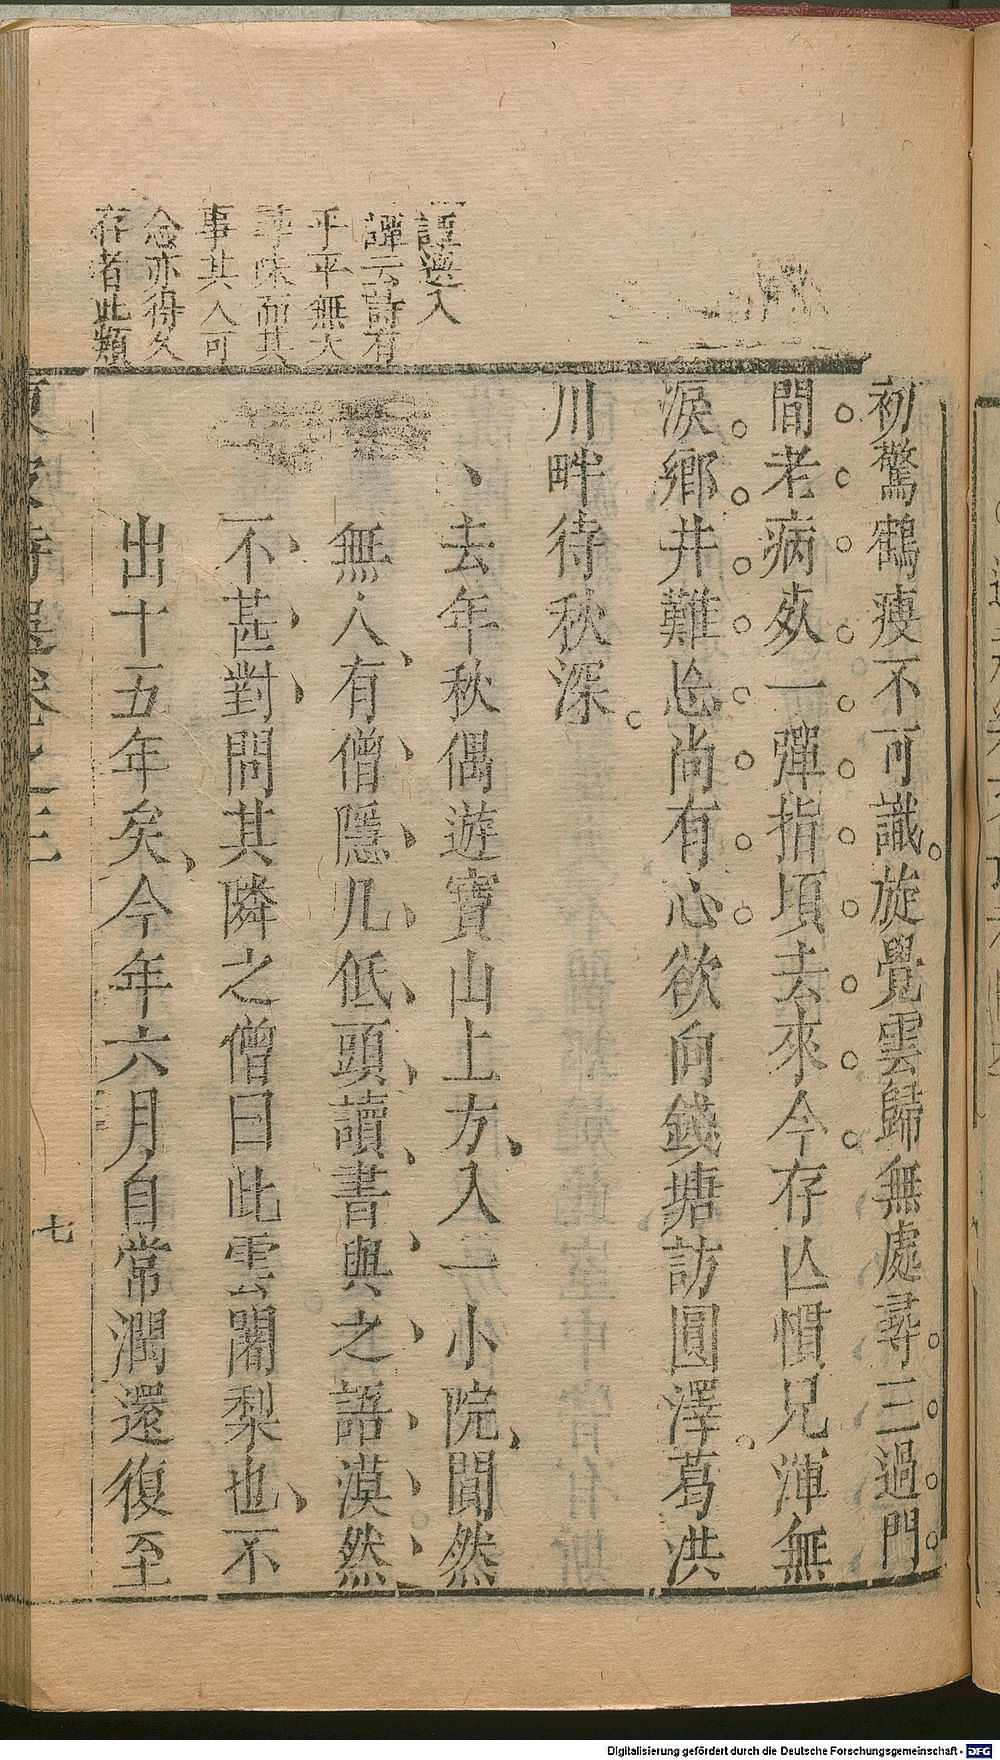 譚選入
譚云詩有
乎平無大
尋味而其
事其人可
念亦得久
存者此類
初驚鶴瘦不可識旋覺雲歸無處尋三過門
間老病死一彈指頃去來今存亡慣見渾無
淚鄉井難忘尚有心欲向錢塘訪圓澤葛洪
川畔待秋深
去年秋偶遊寶山上方入一小院闃然
無人有僧隱几低頭讀書與之語漠然
不甚對問其隣之僧曰此雲闍梨也不
出十五年矣今年六月自常潤還復至
東坡詩選卷之三
七
Digitalisierung gefördert durch die Deutsche Forschungsgemeinschaft - DFG